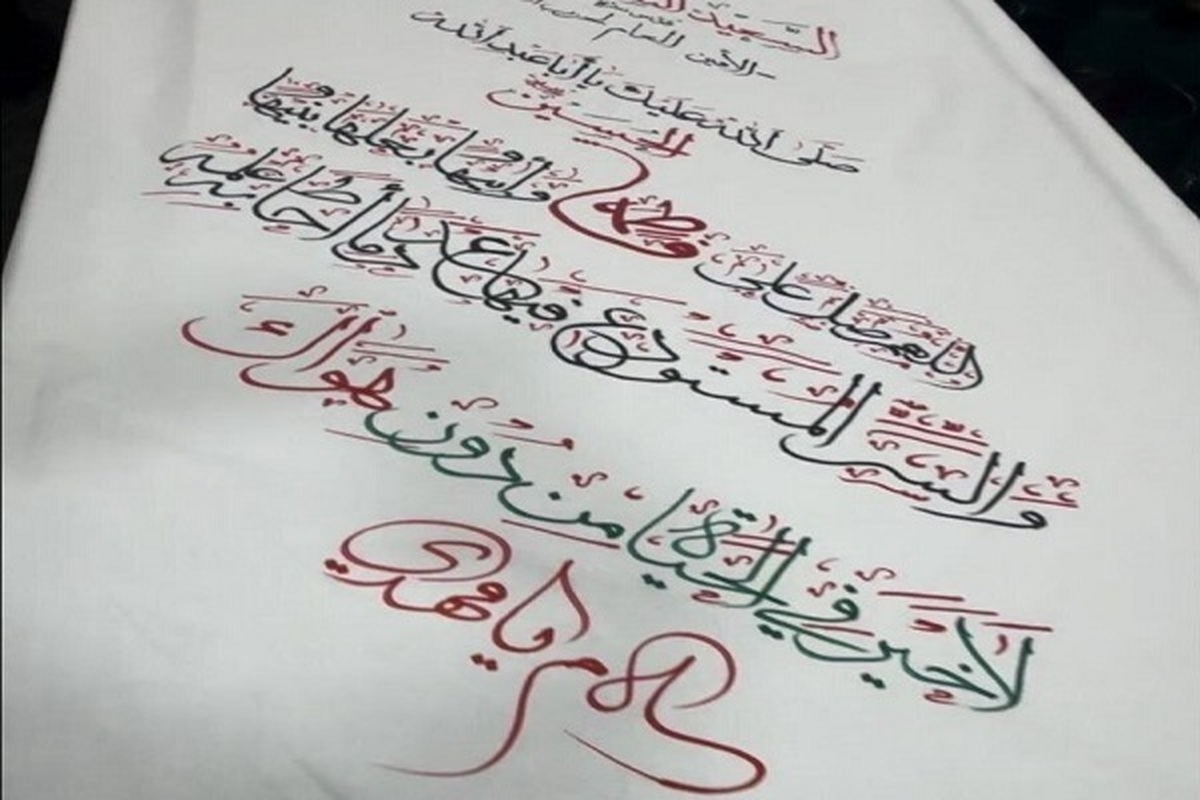 السيد
- الأمين العام لحزب الله
صَلَّى اللهُ عَلَيْكَ يا أبا عَبْدِ اللهِ
الحُسَيْن
اللهم صَلِّ على فاطمة وأبيها وبعلها وبنيها
والسر المستودع فيها عدد ما أحاط به علمه
لا خير في الحياة من دون هواك
يا مهدي